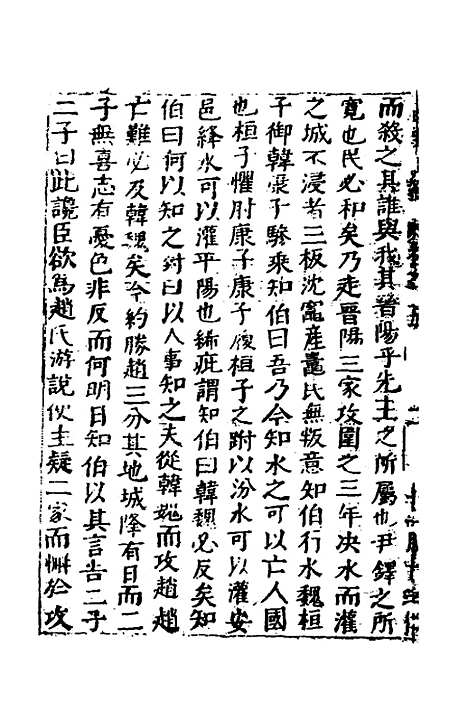 而殺之其誰與我其晉陽乎先主之所屬也尹鐸之所
寬也民必和矣乃走晋陽三家攻圍之三年决水而灌
之城不浸者三板沈竃産鼃民無叛意知伯行水魏桓
子御韓康子驂乘知伯曰吾乃今知水之可以亡人國
也桓子懼肘康子康子履桓子之跗以汾水可以灌安
邑絳水可以灌平陽也絺疵謂知伯曰韓魏必反矣知
伯曰何以知之對曰以人事知之夫從韓魏而攻趙趙
亡難必及韓魏矣今約勝趙三分其地城降有日而二
子無喜志有憂色非反而何明日知伯以其言告二子
二子曰此讒臣欲為趙氏游說使主疑二家而懈於攻